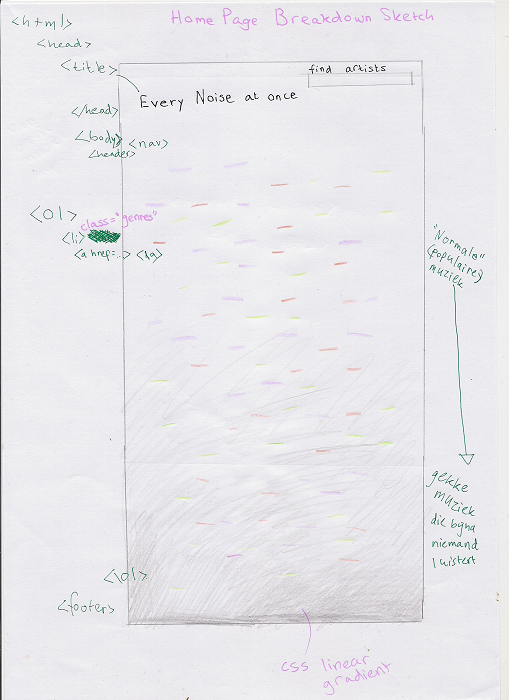 Home Page Breakdown Sketch
<html>
<head>
<title>
find artists
Every Noise at once
</head>
<body>
<nav>
<header>
<ol>
class="genres"
<li>
<a href=...> </a>
"Normale"
(populaire)
muziek
gekke
muziek
die byna
niemand
luistert
</ol>
<footer>
css linear
gradient